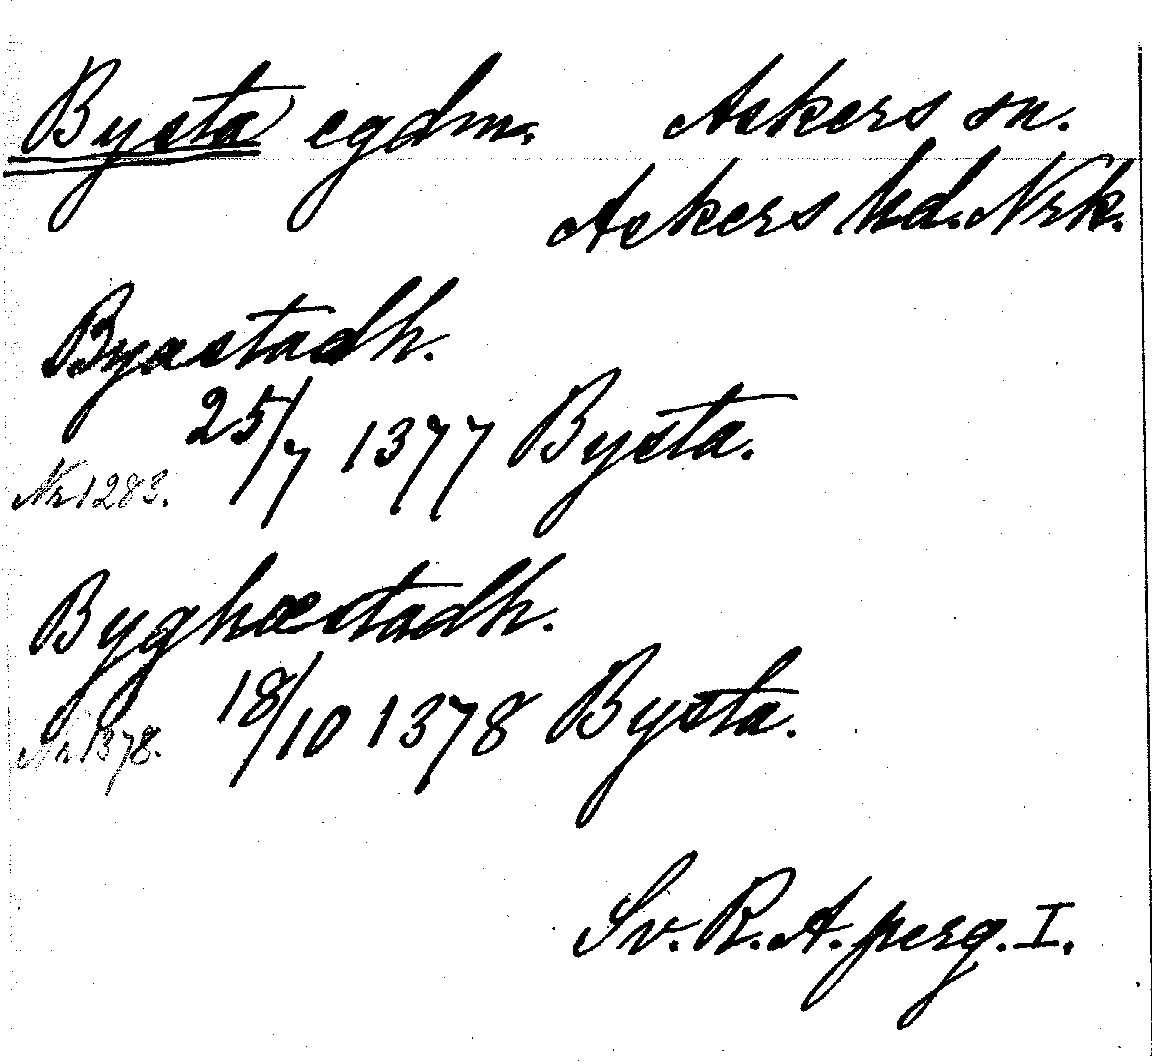 Bysta egdm. Askers sn.
Askers hd. Nrk.
Byastadh.
25/7 1377 Bysta.
Nr 1283.
Byghæstadh.
18/10 1378 Bysta.
Nr 1378.
Sv. R. A. perg. I.